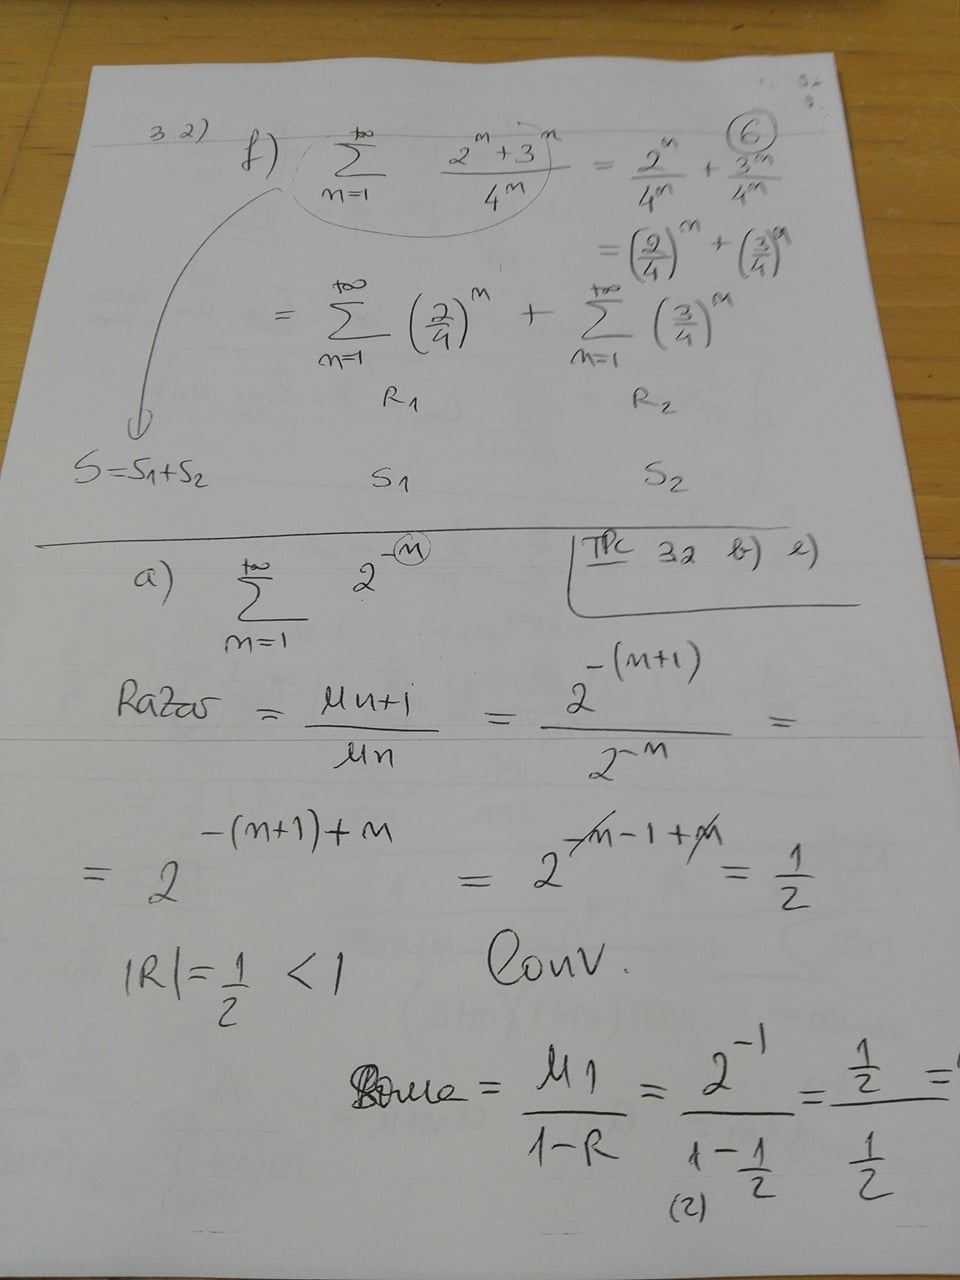 6
3.2) f) \sum_{n=1}^{+\infty} \frac{2^n+3^n}{4^n} = \frac{2^n}{4^n} + \frac{3^n}{4^n}
= \left(\frac{2}{4}\right)^n + \left(\frac{3}{4}\right)^n
= \sum_{n=1}^{+\infty} \left(\frac{2}{4}\right)^n + \sum_{n=1}^{+\infty} \left(\frac{3}{4}\right)^n
R_1 R_2
S=S_1+S_2 S_1 S_2
a) \sum_{n=1}^{+\infty} 2^{-n} TPC 32 b) e)
Razao = \frac{u_{n+1}}{u_n} = \frac{2^{-(n+1)}}{2^{-n}} =
= 2^{-(n+1)+n} = 2^{-n-1+n} = \frac{1}{2}
|R| = \frac{1}{2} < 1 Conv.
Soma = \frac{u_1}{1-R} = \frac{2^{-1}}{1-\frac{1}{2}} = \frac{\frac{1}{2}}{\frac{1}{2}} =
(2)